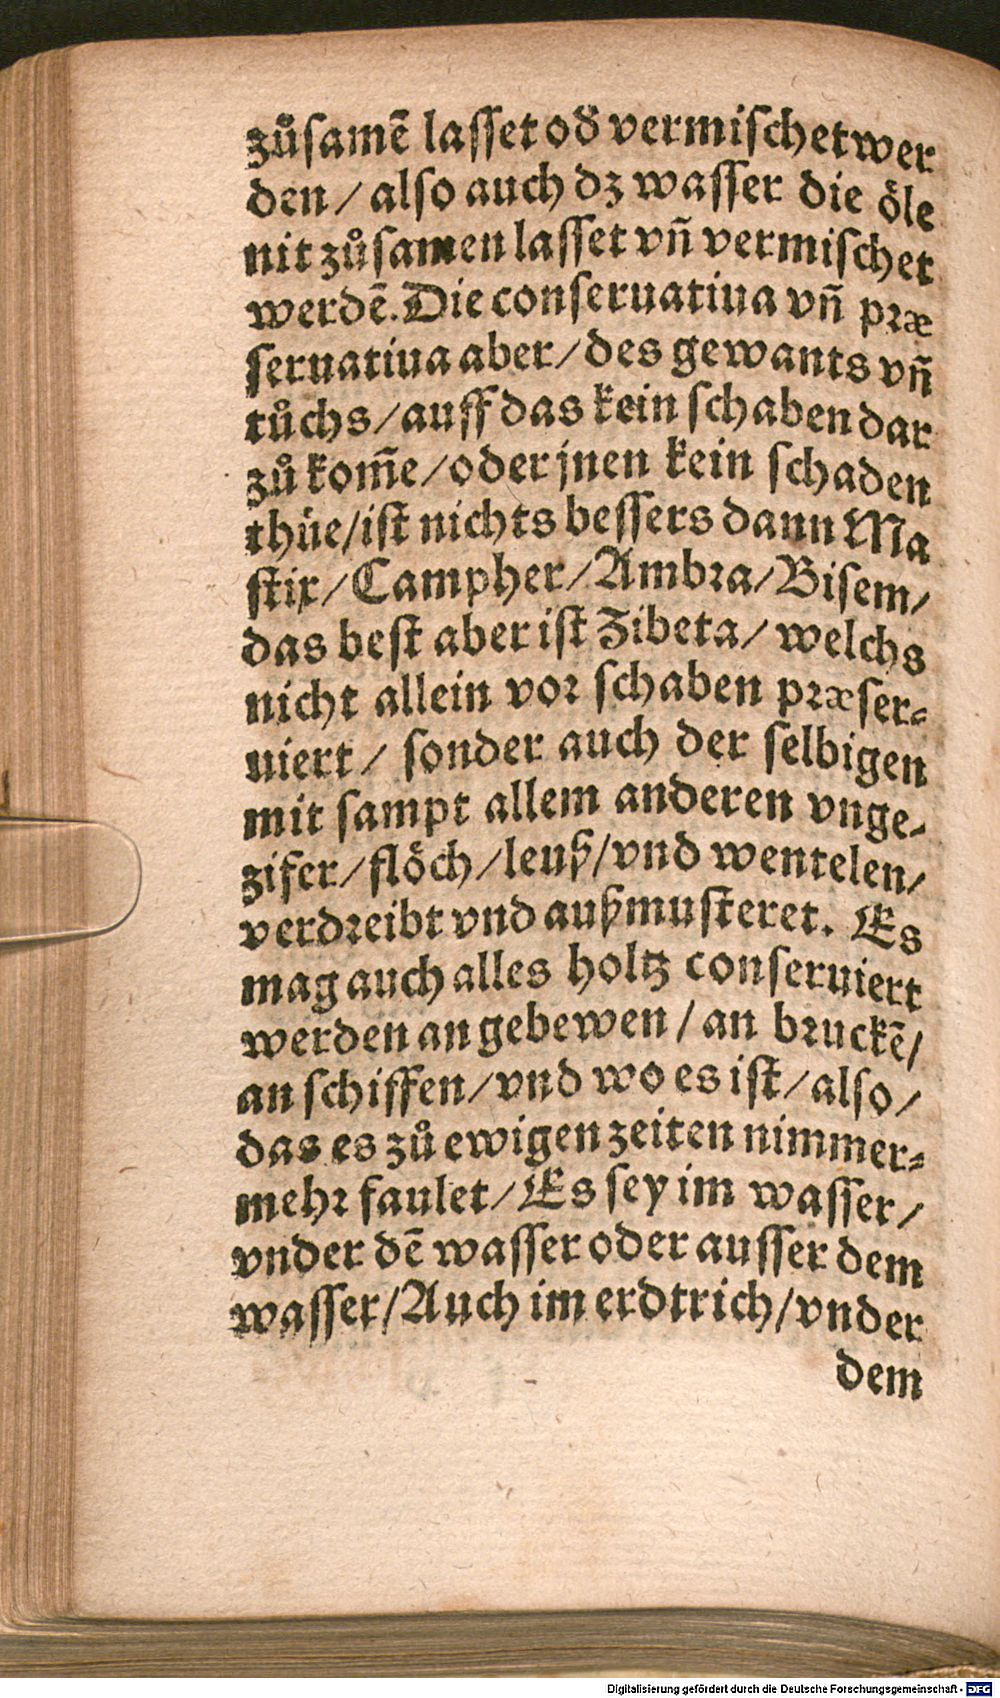 zůsamē lasset oď vermischet wer
den / also auch dz wasser die öle
nit zůsamen lasset vñ vermischet
werdē. Die conseruatiua vñ præ
seruatiua aber / des gewants vñ
tůchs / auff das kein schaben dar
zů kom̄e / oder jnen kein schaden
thüe / ist nichts bessers dann Ma
stix / Campher / Ambra / Bisem /
das best aber ist Zibeta / welchs
nicht allein vor schaben præser-
uiert / sonder auch der selbigen
mit sampt allem anderen vnge-
zifer / flöch / leuß / vnd wentelen /
verdreibt vnd außmusteret. Es
mag auch alles holtz conseruiert
werden an gebewen / an bruckē /
an schiffen / vnd wo es ist / also /
das es zů ewigen zeiten nimmer-
mehr faulet / Es sey im wasser /
vnder dē wasser oder ausser dem
wasser / Auch im erdtrich / vnder
dem
Digitalisierung gefördert durch die Deutsche Forschungsgemeinschaft - DFG